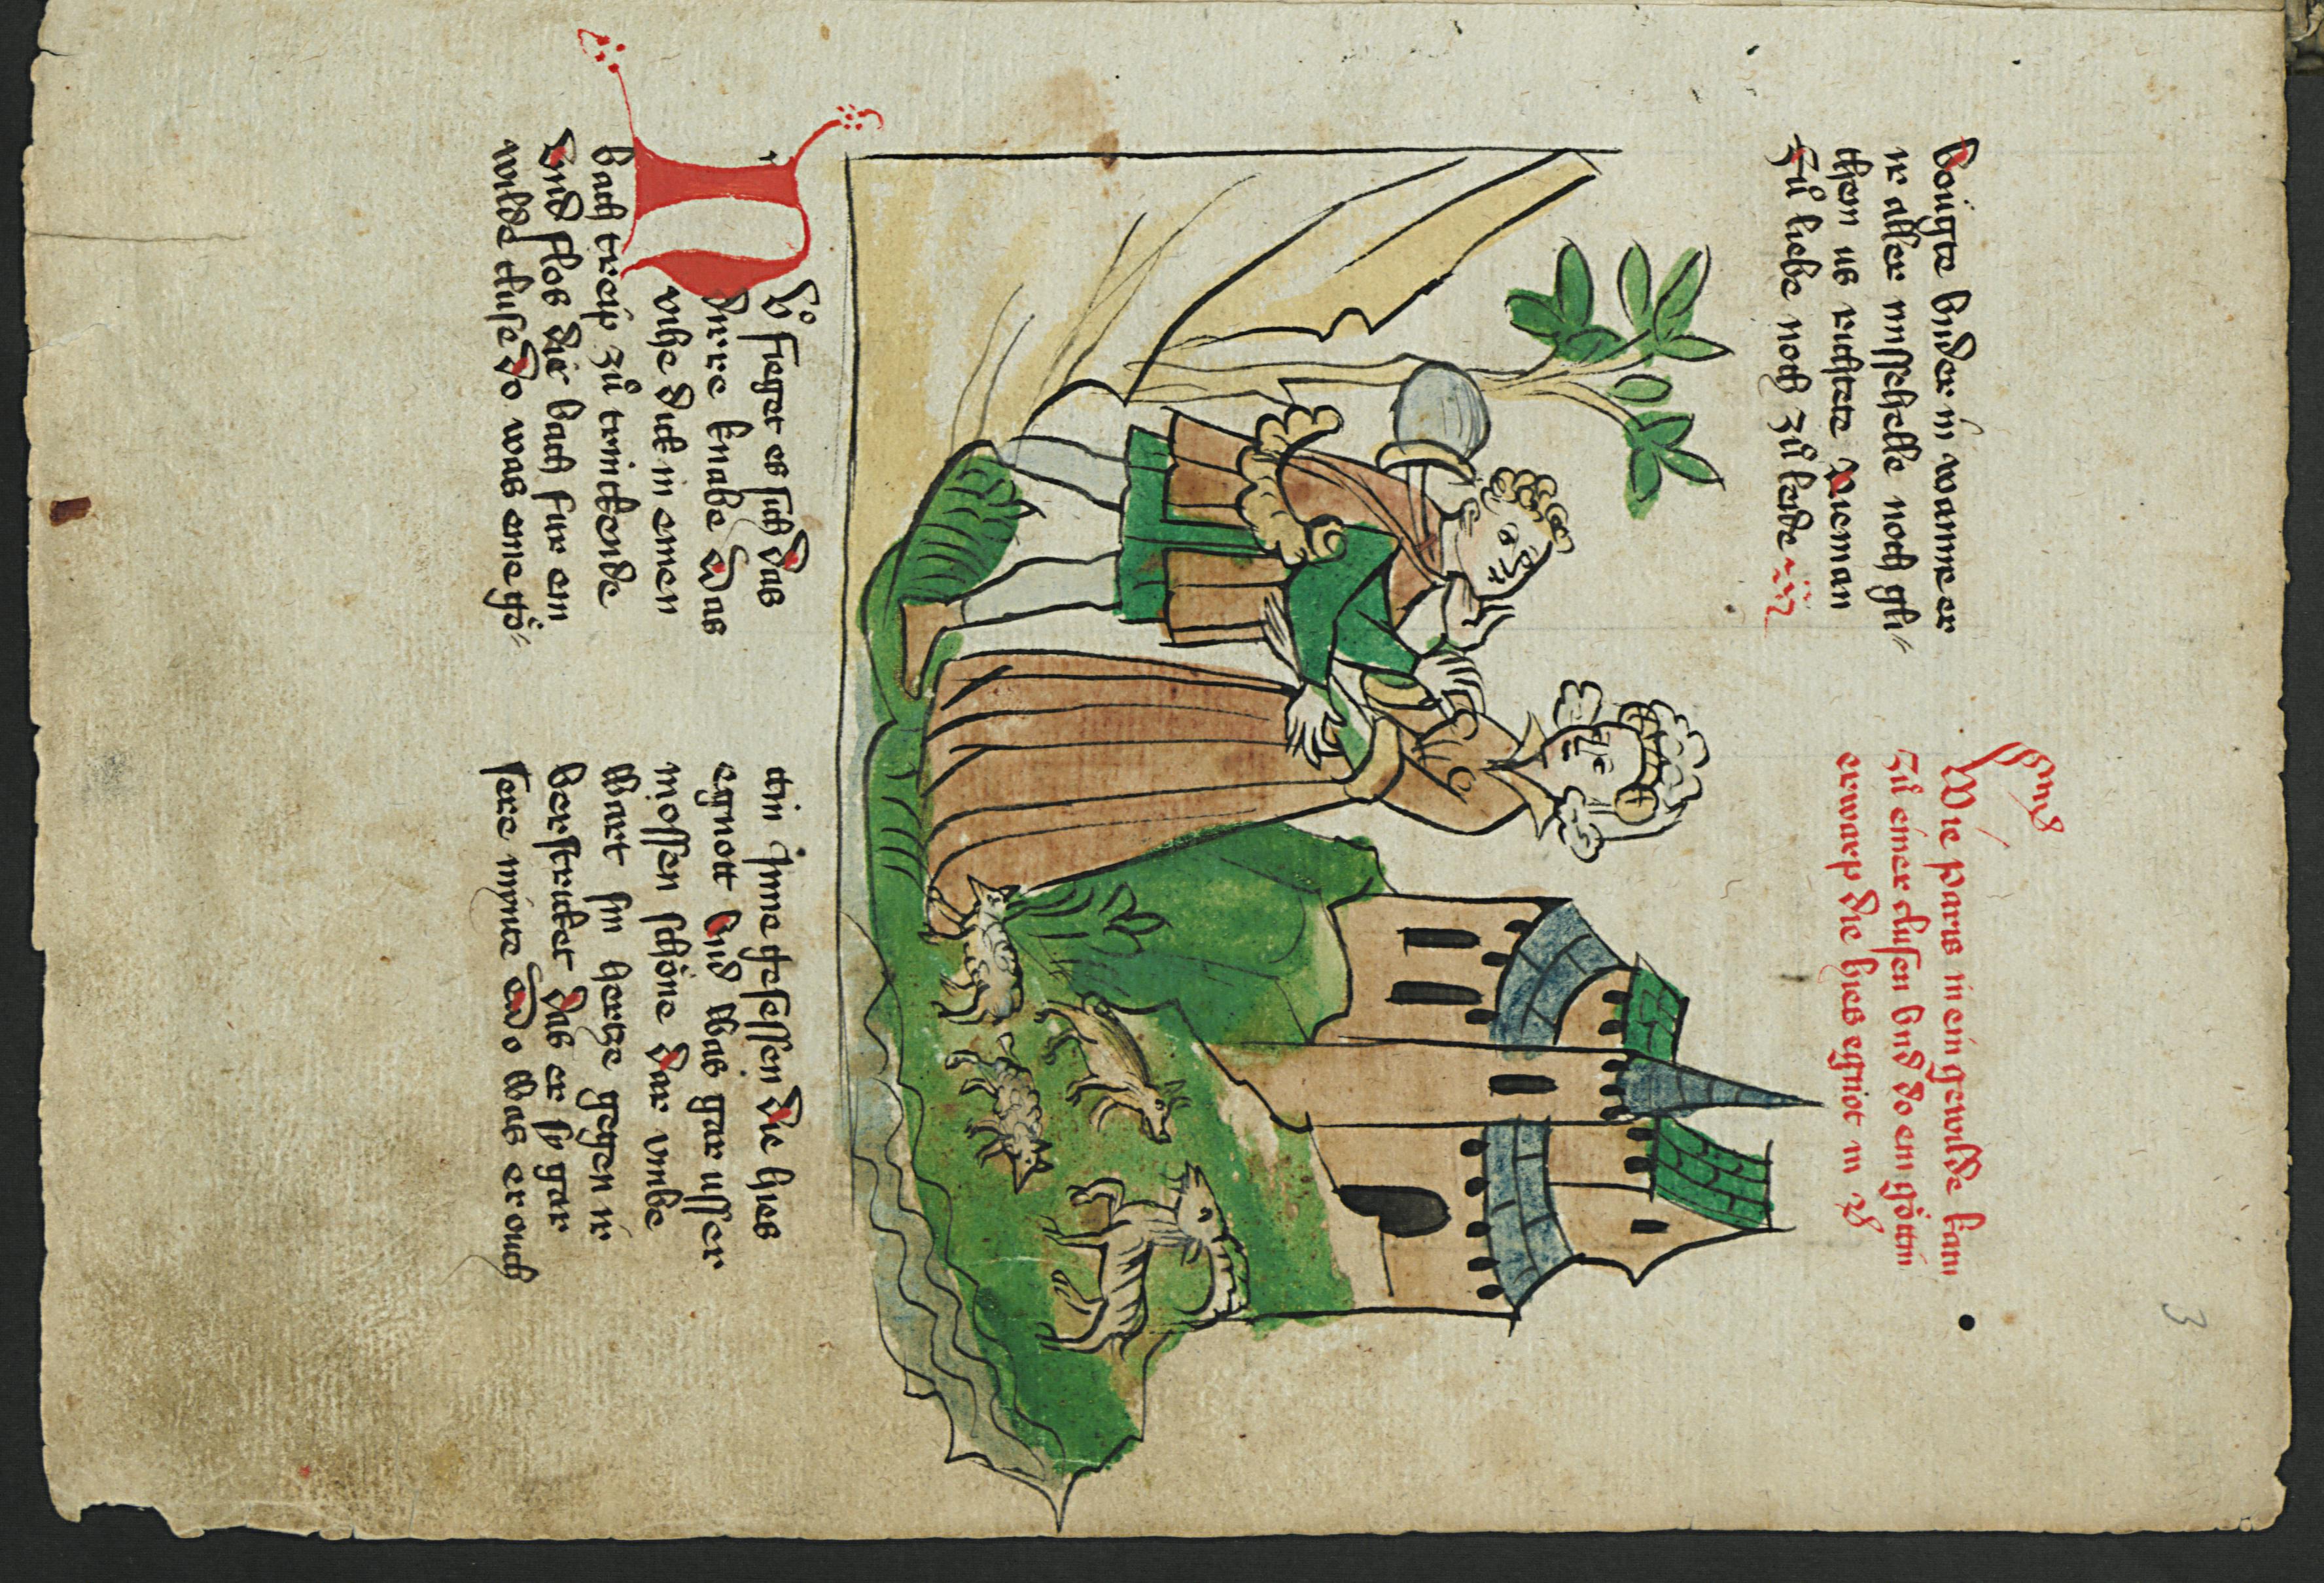 voigte vnder in wanne er
ir aller missehelle noch gli-
chem us richtete Nieman
zů liebe noch zů leide
Wie paris in ein gewilde kam
zů einer clusen vnd do ein göttin
erwarp die hies egnot
3
Nů fieget es sich das
dirre knabe Das
vihe dick in einen
bach treip zů trinckende
vnd flos die bach fur ein
wilde cluse Do was eine gö-
ttin Inne gesessen Die hies
egnott vnd was gar usser
mossen schöne Dar vmbe
wart sin hertze gegen ir
verstricket Das er sy gar
sere mynte Do was er ouch